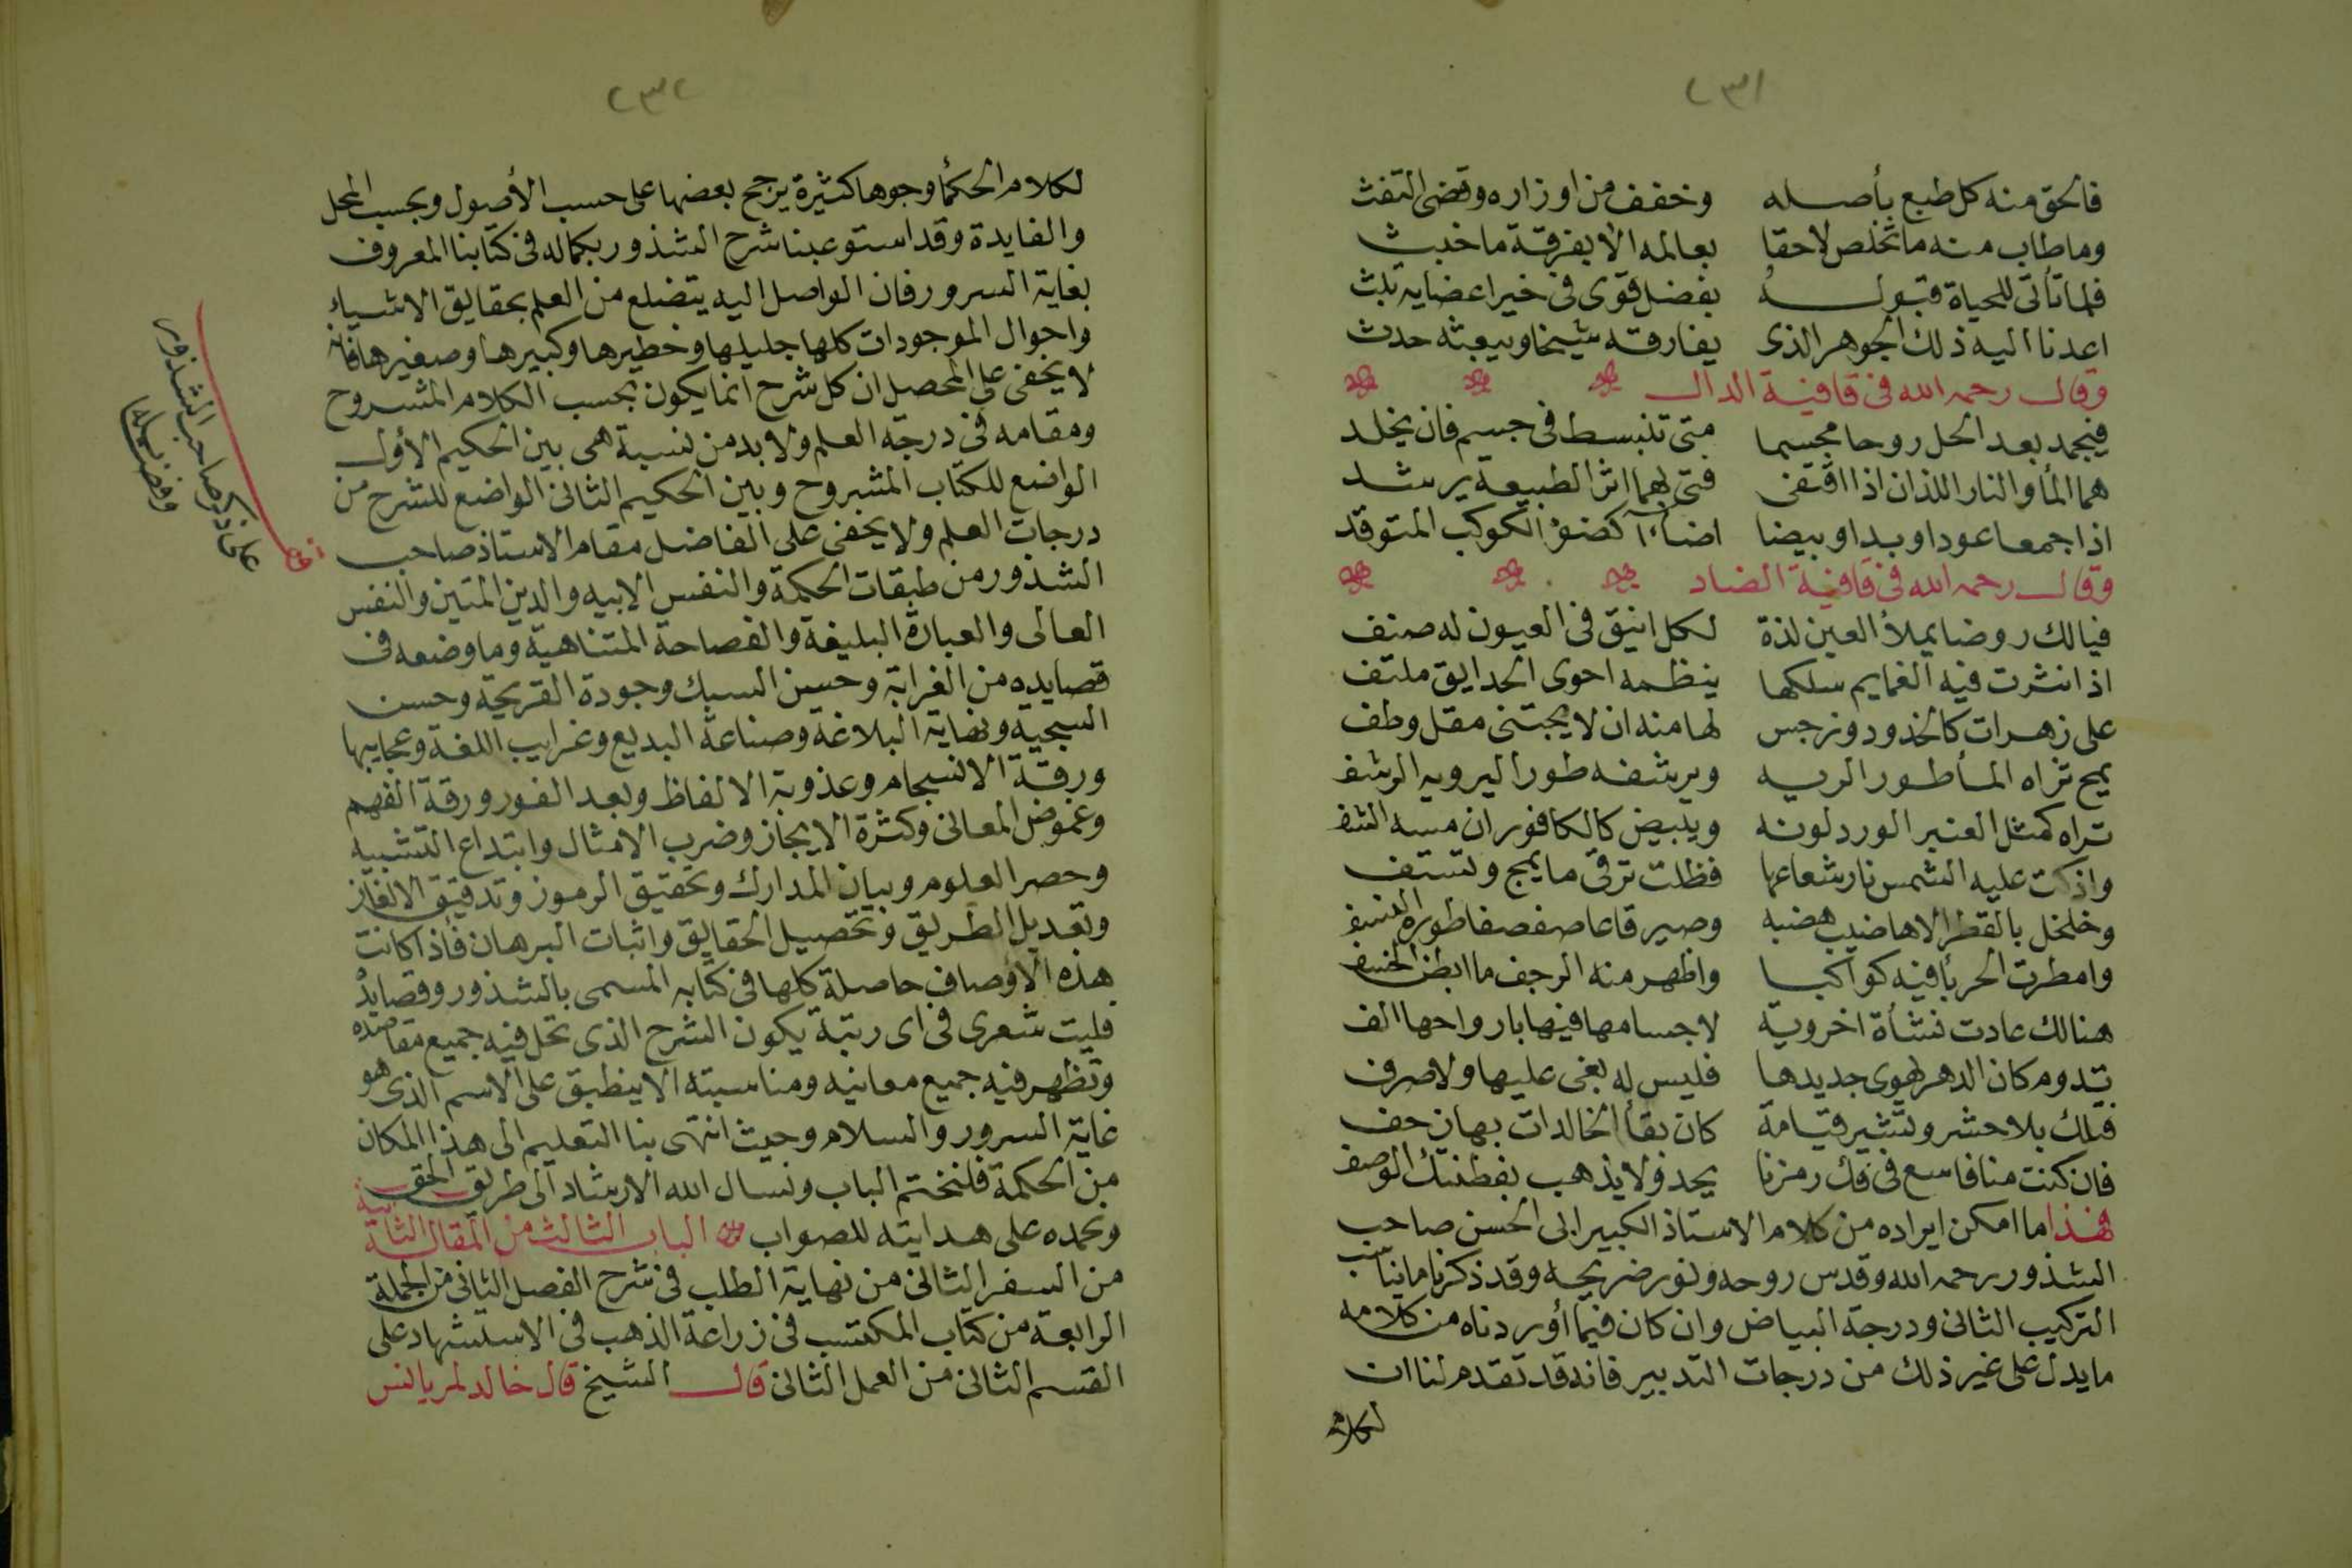 ٢٣١
فالحق منه كل طبع بأصله وخفف من اوزاره وقضى التفث
وما طاب منه ما تخلص لاحقا بعالمه الا بفرقة ما خبث
فلما تأتى للحياة قبوله بفضل قوى في خير اعضايه تلث
اعدنا اليه ذلك الجوهر الذى يفارقه شيخا ويبعثه حدث
وقال رحمه الله فى قافية الدال
فيجمد بعد الحل روحا مجسما متى تنبسط فى جسم فان يخلد
هما المأ والنار اللذان اذا اقتفى فتى بهما اثر الطبيعة يرشد
اذا جمعا عودا وبدا وبيضا اضاآ كضؤ الكوكب المتوقد
وقال رحمه الله فى قافية الضاد
فيالك روضا يملأ العين لذة لكل انيق فى العيون له صنف
اذا نثرت فيه الغمايم سلكها ينظمه احوى الحدايق ملتف
على زهرات كالخدود ونرجس لها منه ان لا يجتنى مقل وطف
يمج تراه المأ طورا لريه ويرشفه طورا ليرويه الرشف
تراه كمثل العنبر الورد لونه ويبيض كالكافور ان مسه الشف
واذكت عليه الشمس نار شعاعها فظلت ترقى ما يمج وتستف
وخلخل بالقطر الاهاضيب هضبه وصير قاعا صفصفا طوره النسف
وامطرت الحربأ فيه كواكبا واظهر منه الرجف ما ابطن الخسف
هنالك عادت نشأة اخروية لاجسامها فيها بارواحها الف
يدوم كان الدهر يهوى جديدها فليس له بغى عليها ولا صرف
فملك بلا حشر ونشر قيامة كان بقأ الخالدات بها حف
فان كنت منا فاسع فى فك رمزنا يحد ولا يذهب بفطنتك الوصف
فهذا ما امكن ايراده من كلام الاستاذ الكبير ابى الحسن صاحب
الشذور رحمه الله وقدس روحه ونور ضريحه وقد ذكرنا ما يناسب
التركيب الثانى ودرجة البياض وان كان فيما أوردناه من كلامه
ما يدل على غير ذلك من درجات التدبير فانه قد تقدم لنا ان
لكلام
٢٣٢
لكلام الحكمأ وجوها كثيرة يرجح بعضها على حسب الأصول وبحسب المحل
والفايدة وقد استوعبنا شرح الشذور بكماله فى كتابنا المعروف
بغاية السرور فان الواصل اليه يتضلع من العلم بحقايق الاشياء
واحوال الموجودات كلها جليلها وخطيرها وكبيرها وصغيرها فانه
لا يخفى على المحصل ان كل شرح انما يكون بحسب الكلام المشروح
ومقامه فى درجة العلم ولا بد من نسبة هى بين الحكيم الأول
الواضع للكتاب المشروح وبين الحكيم الثانى الواضع للشرح من
درجات العلم ولا يخفى على الفاضل مقام الاستاذ صاحب
الشذور من طبقات الحكمة والنفس الابيه والدين المتين والنفس
العالى والعبارة البليغة والفصاحة المتناهية وما وضعه فى
قصايده من الغرابة وحسن السبك وجودة القريحة وحسن
السجية ونهاية البلاغة وصناعة البديع وغرايب اللغة وعجايبها
ورقة الانسجام وعذوبة الالفاظ وبعد الغور ورقة الفهم
وغموض المعانى وكثرة الايجاز وضرب الامثال وابتداع التشبيه
وحصر العلوم وبيان المدارك وتحقيق الرموز وتدقيق الالغاز
وتعديل الطريق وتحصيل الحقايق واثبات البرهان فأذا كانت
هذه الأوصاف حاصلة كلها فى كتابه المسمى بالشذور وقصايد
فليت شعرى فى اى رتبة يكون الشرح الذى تحل فيه جميع مقاصده
وتظهر فيه جميع معانيه ومناسبته الا ينطبق على الاسم الذى هو
غاية السرور والسلام وحيث انتهى بنا التعليم الى هذا المكان
من الحكمة فلنختم الباب ونسال الله الارشاد الى طريق الحق
ونحمده على هدايته للصواب الباب الثالث من المقالة الثانية
من السفر الثانى من نهاية الطلب فى شرح الفصل الثانى من الجملة
الرابعة من كتاب المكتسب فى زراعة الذهب فى الاستشهاد على
القسم الثانى من العمل الثانى قال الشيخ قال خالد لمريانس
على ذكر صاحب الشذور